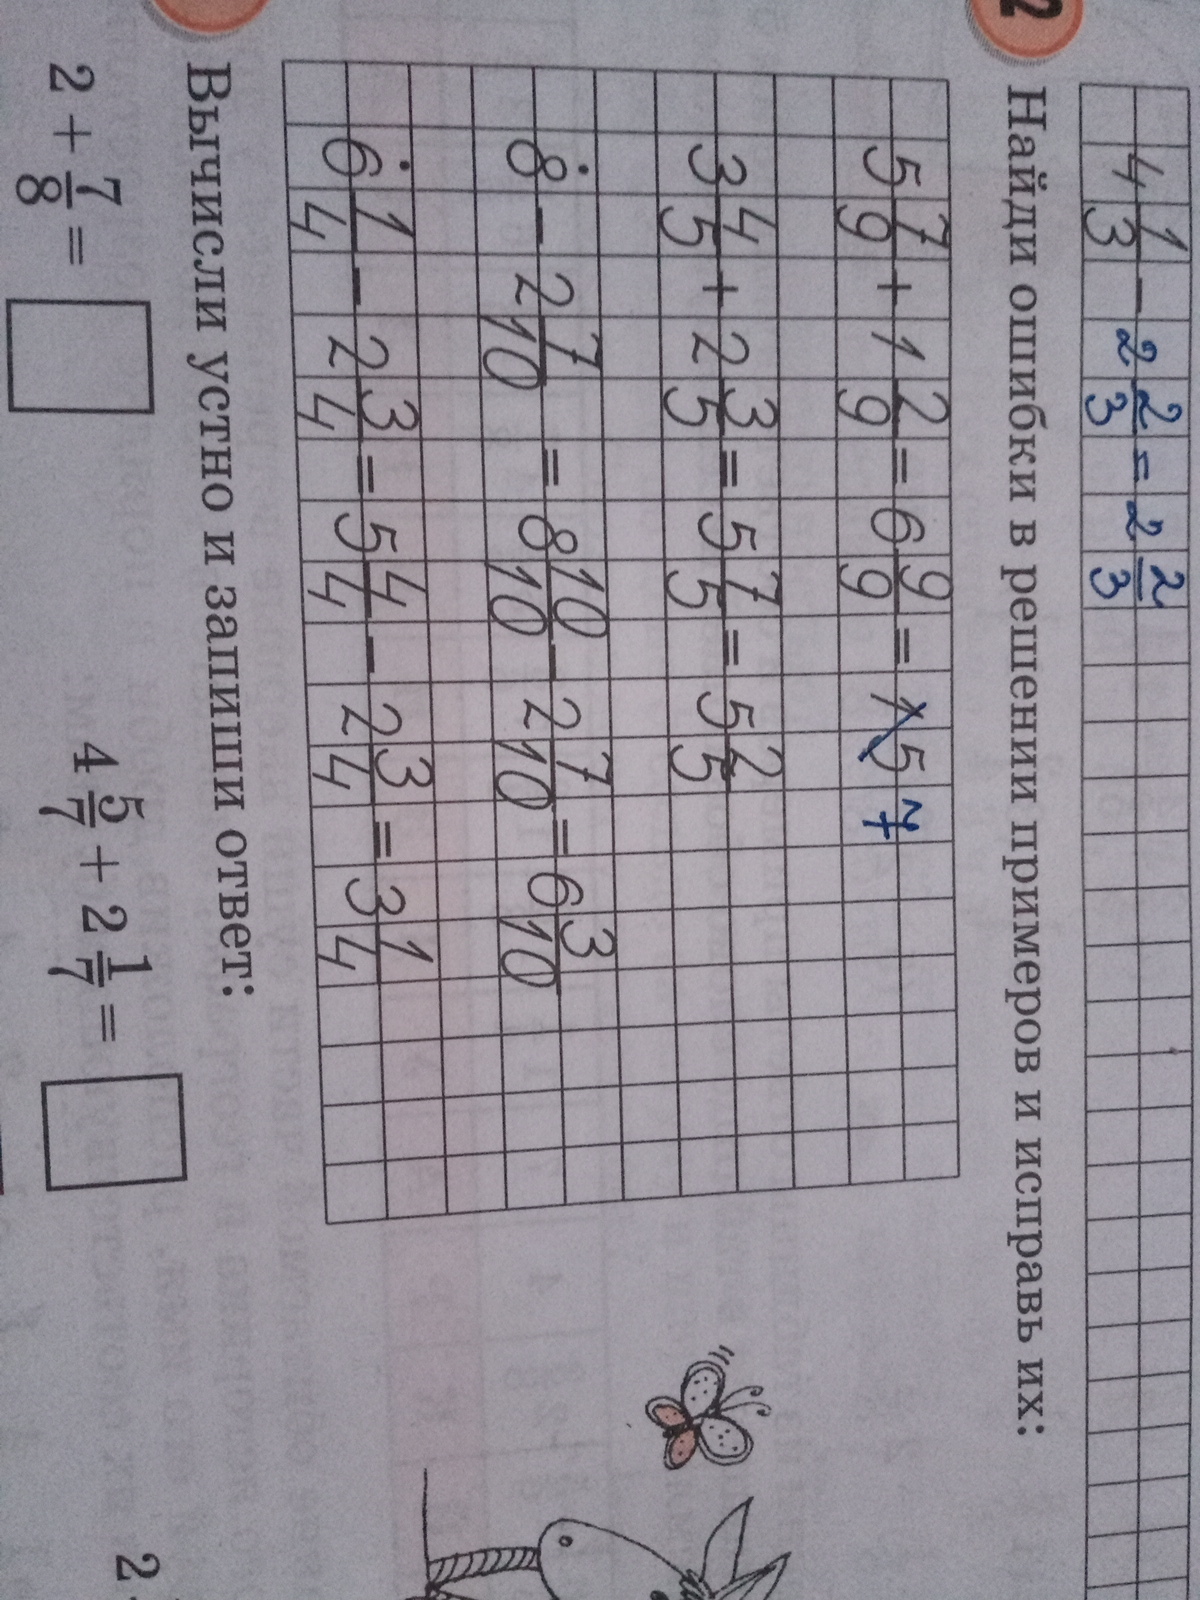 4 1/3 - 2 2/3 = 2 2/3
2 Найди ошибки в решении примеров и исправь их:
5 7/9 + 1 2/9 = 6 9/9 = 15 7
3 4/5 + 2 3/5 = 5 7/5 = 5 2/5
8 - 2 7/10 = 8 10/10 - 2 7/10 = 6 3/10
6 1/4 - 2 3/4 = 5 4/4 - 2 3/4 = 3 1/4
Вычисли устно и запиши ответ:
2 + 7/8 =
4 5/7 + 2 1/7 =
2